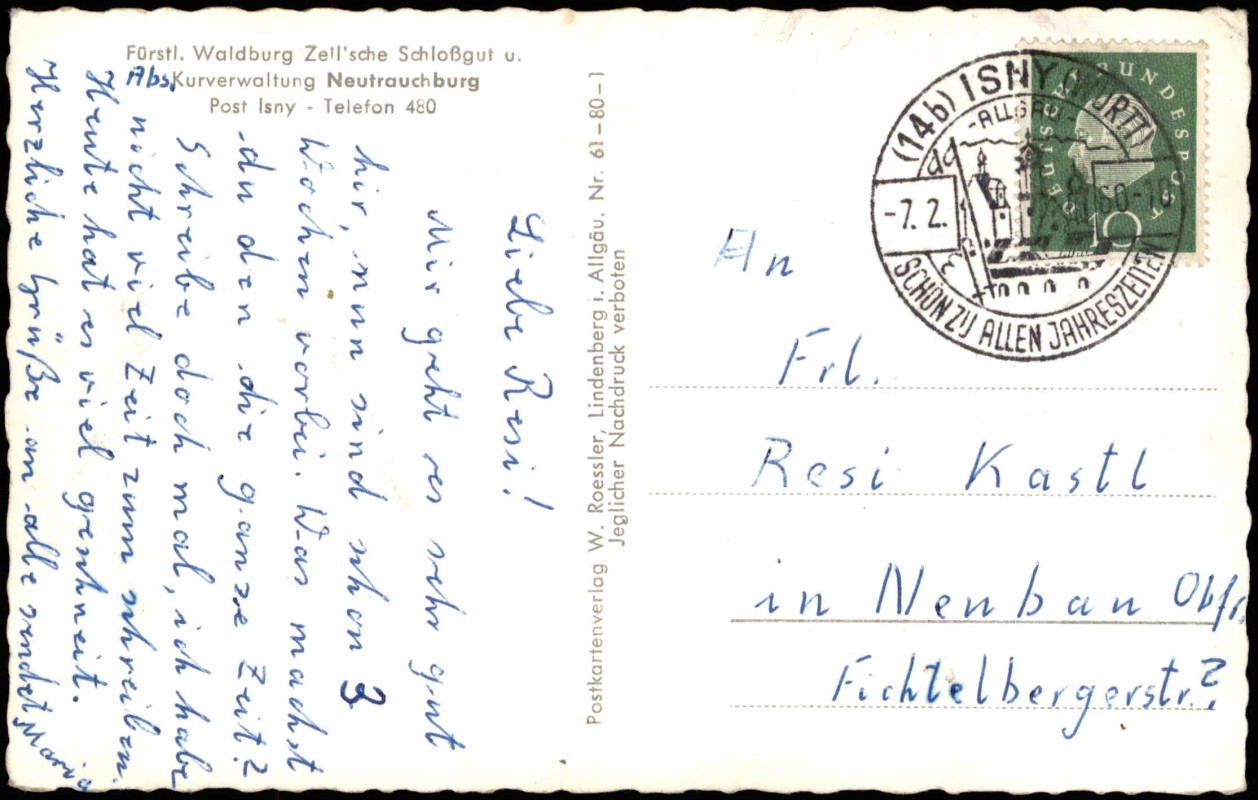 Fürstl. Waldburg Zeil'sche Schloßgut u.
Abs. Kurverwaltung Neutrauchburg
Post Isny - Telefon 480
Liebe Resi!
Mir geht es sehr gut
hir, nun sind schon 3
Wochen vorbei. Was machst
du den die ganze Zeit?
Schreibe doch mal, ich habe
nicht viel Zeit zum schreiben.
Heute hat es viel geschneit.
Herzliche Grüße an alle sendet Maria
Postkartenverlag W. Roessler, Lindenberg i. Allgäu. Nr. 61-80-1
Jeglicher Nachdruck verboten
(14b) ISNY (WÜRTT)
-ALLGÄU-
-7.2.60-10
SCHÖN ZU ALLEN JAHRESZEITEN
DEUTSCHE BUNDESPOST
10
An
Frl.
Resi Kastl
in Neubau Obfr.
Fichtelbergerstr.?